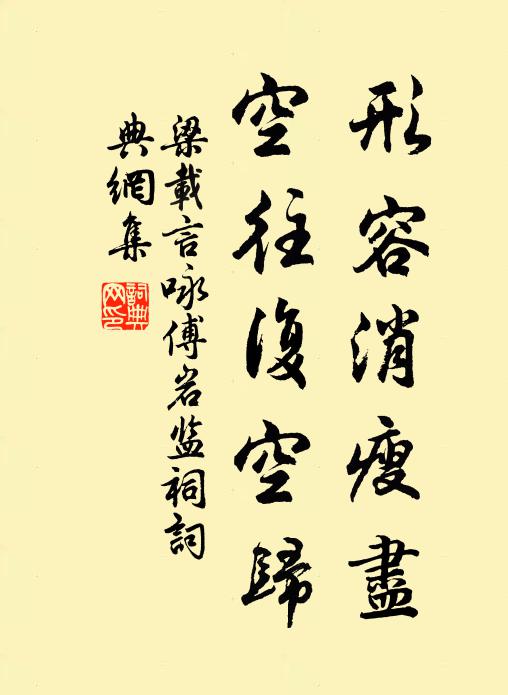 形容消瘦盡
空往復空歸
梁載言咏傅岩监祠詞
典網集
詞典網印